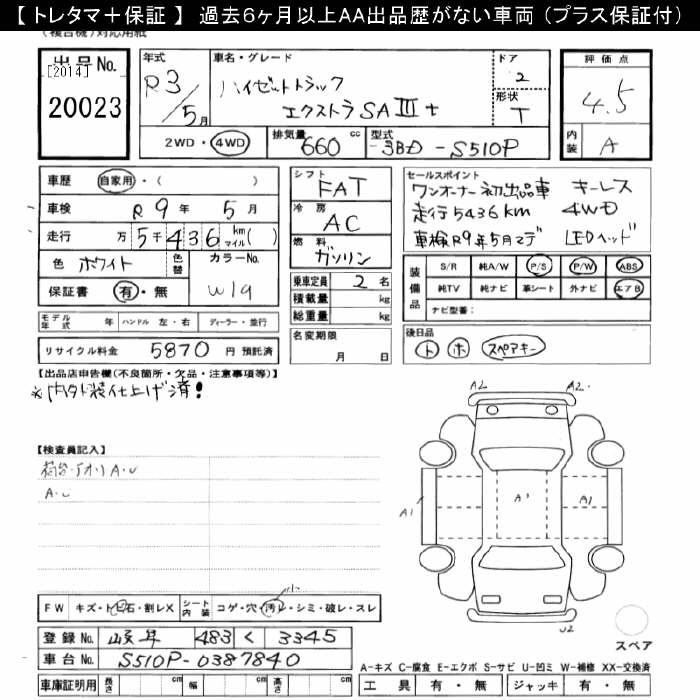 【 トレタマ＋保証 】 過去６ヶ月以上AA出品歴がない車両（プラス保証付）
(複合機)対応用紙
出品No.
[2014]
20023
年式
R3/5月
車名・グレード
ハイゼットトラック
エクストラSAⅢt
ドア
2
形状
T
評価点
4.5
内装
A
2WD・4WD
排気量
660 cc
型式
3BD-S510P
車歴 自家用・( )
車検 R 9年 5月
走行 万5千436 km マイル( )
色 ホワイト 色替 カラーNo.
W19
保証書 有・無
モデル年式 年 ハンドル 左・右 ディーラー・並行
リサイクル料金 5870 円 預託済
シフト
FAT
冷房
AC
燃料
ガソリン
乗車定員 2名
積載量 kg
総重量 kg
名変期限
月 日
セールスポイント
ワンオーナー初出品車 キーレス
走行5436km 4WD
車検R9年5月マデ LEDヘッド
装備品
S/R 純A/W P/S P/W ABS
純TV 純ナビ 革シート 外ナビ エアB
ナビ型番：
後日品
ト ホ スペアキー
【出品店申告欄(不良箇所・欠品・注意事項等)】
仕上げ済！
【検査員記入】
A・U
FW キズ・トビ石・割レX シート内装 コゲ・穴・汚レ・シミ・破レ・スレ
小
登録No. 岐阜 483 く 3345
車台No. S510P-0387840
車庫証明用 長さ cm 幅 cm 高さ cm
A2 A2
A1 A1 A1
U2
スペア
A-キズ C-腐食 E-エクボ S-サビ U-凹ミ W-補修 XX-交換済
工具 有・無 ジャッキ 有・無